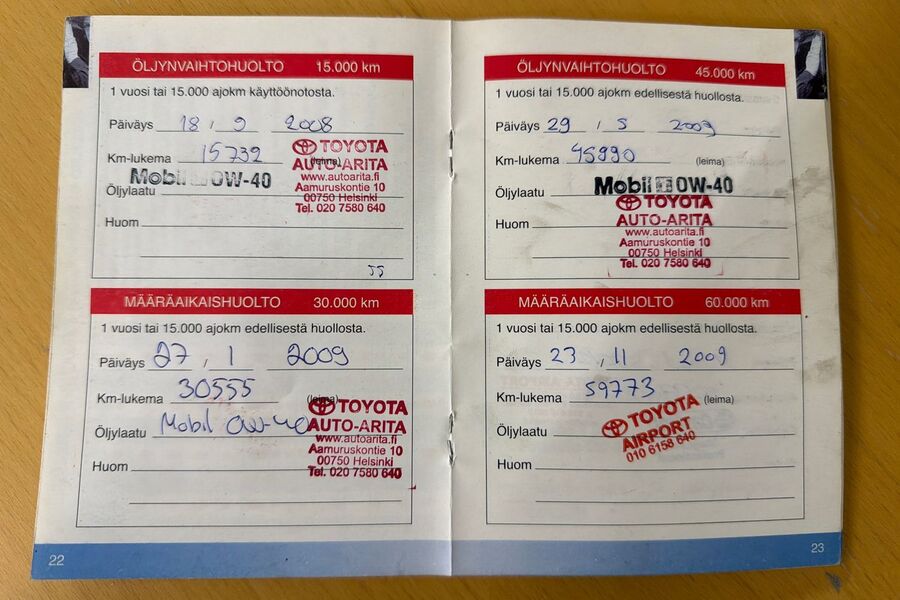 ÖLJYNVAIHTOHUOLTO 15.000 km
1 vuosi tai 15.000 ajokm käyttöönotosta.
Päiväys 18 / 9 2008
Km-lukema 15732 (leima)
Öljylaatu Mobil 1 0W-40
TOYOTA
AUTO-ARITA
www.autoarita.fi
Aamuruskontie 10
00750 Helsinki
Tel. 020 7580 640
Huom
JJ
MÄÄRÄAIKAISHUOLTO 30.000 km
1 vuosi tai 15.000 ajokm edellisestä huollosta.
Päiväys 27 / 1 2009
Km-lukema 30555 (leima)
Öljylaatu Mobil 0W-40
TOYOTA
AUTO-ARITA
www.autoarita.fi
Aamuruskontie 10
00750 Helsinki
Tel. 020 7580 640
Huom
22
ÖLJYNVAIHTOHUOLTO 45.000 km
1 vuosi tai 15.000 ajokm edellisestä huollosta.
Päiväys 29 / 5 2009
Km-lukema 45990 (leima)
Öljylaatu Mobil 1 0W-40
TOYOTA
AUTO-ARITA
www.autoarita.fi
Aamuruskontie 10
00750 Helsinki
Tel. 020 7580 640
Huom
MÄÄRÄAIKAISHUOLTO 60.000 km
1 vuosi tai 15.000 ajokm edellisestä huollosta.
Päiväys 23 / 11 2009
Km-lukema 59773 (leima)
Öljylaatu
TOYOTA
AIRPORT
010 6158 640
Huom
23